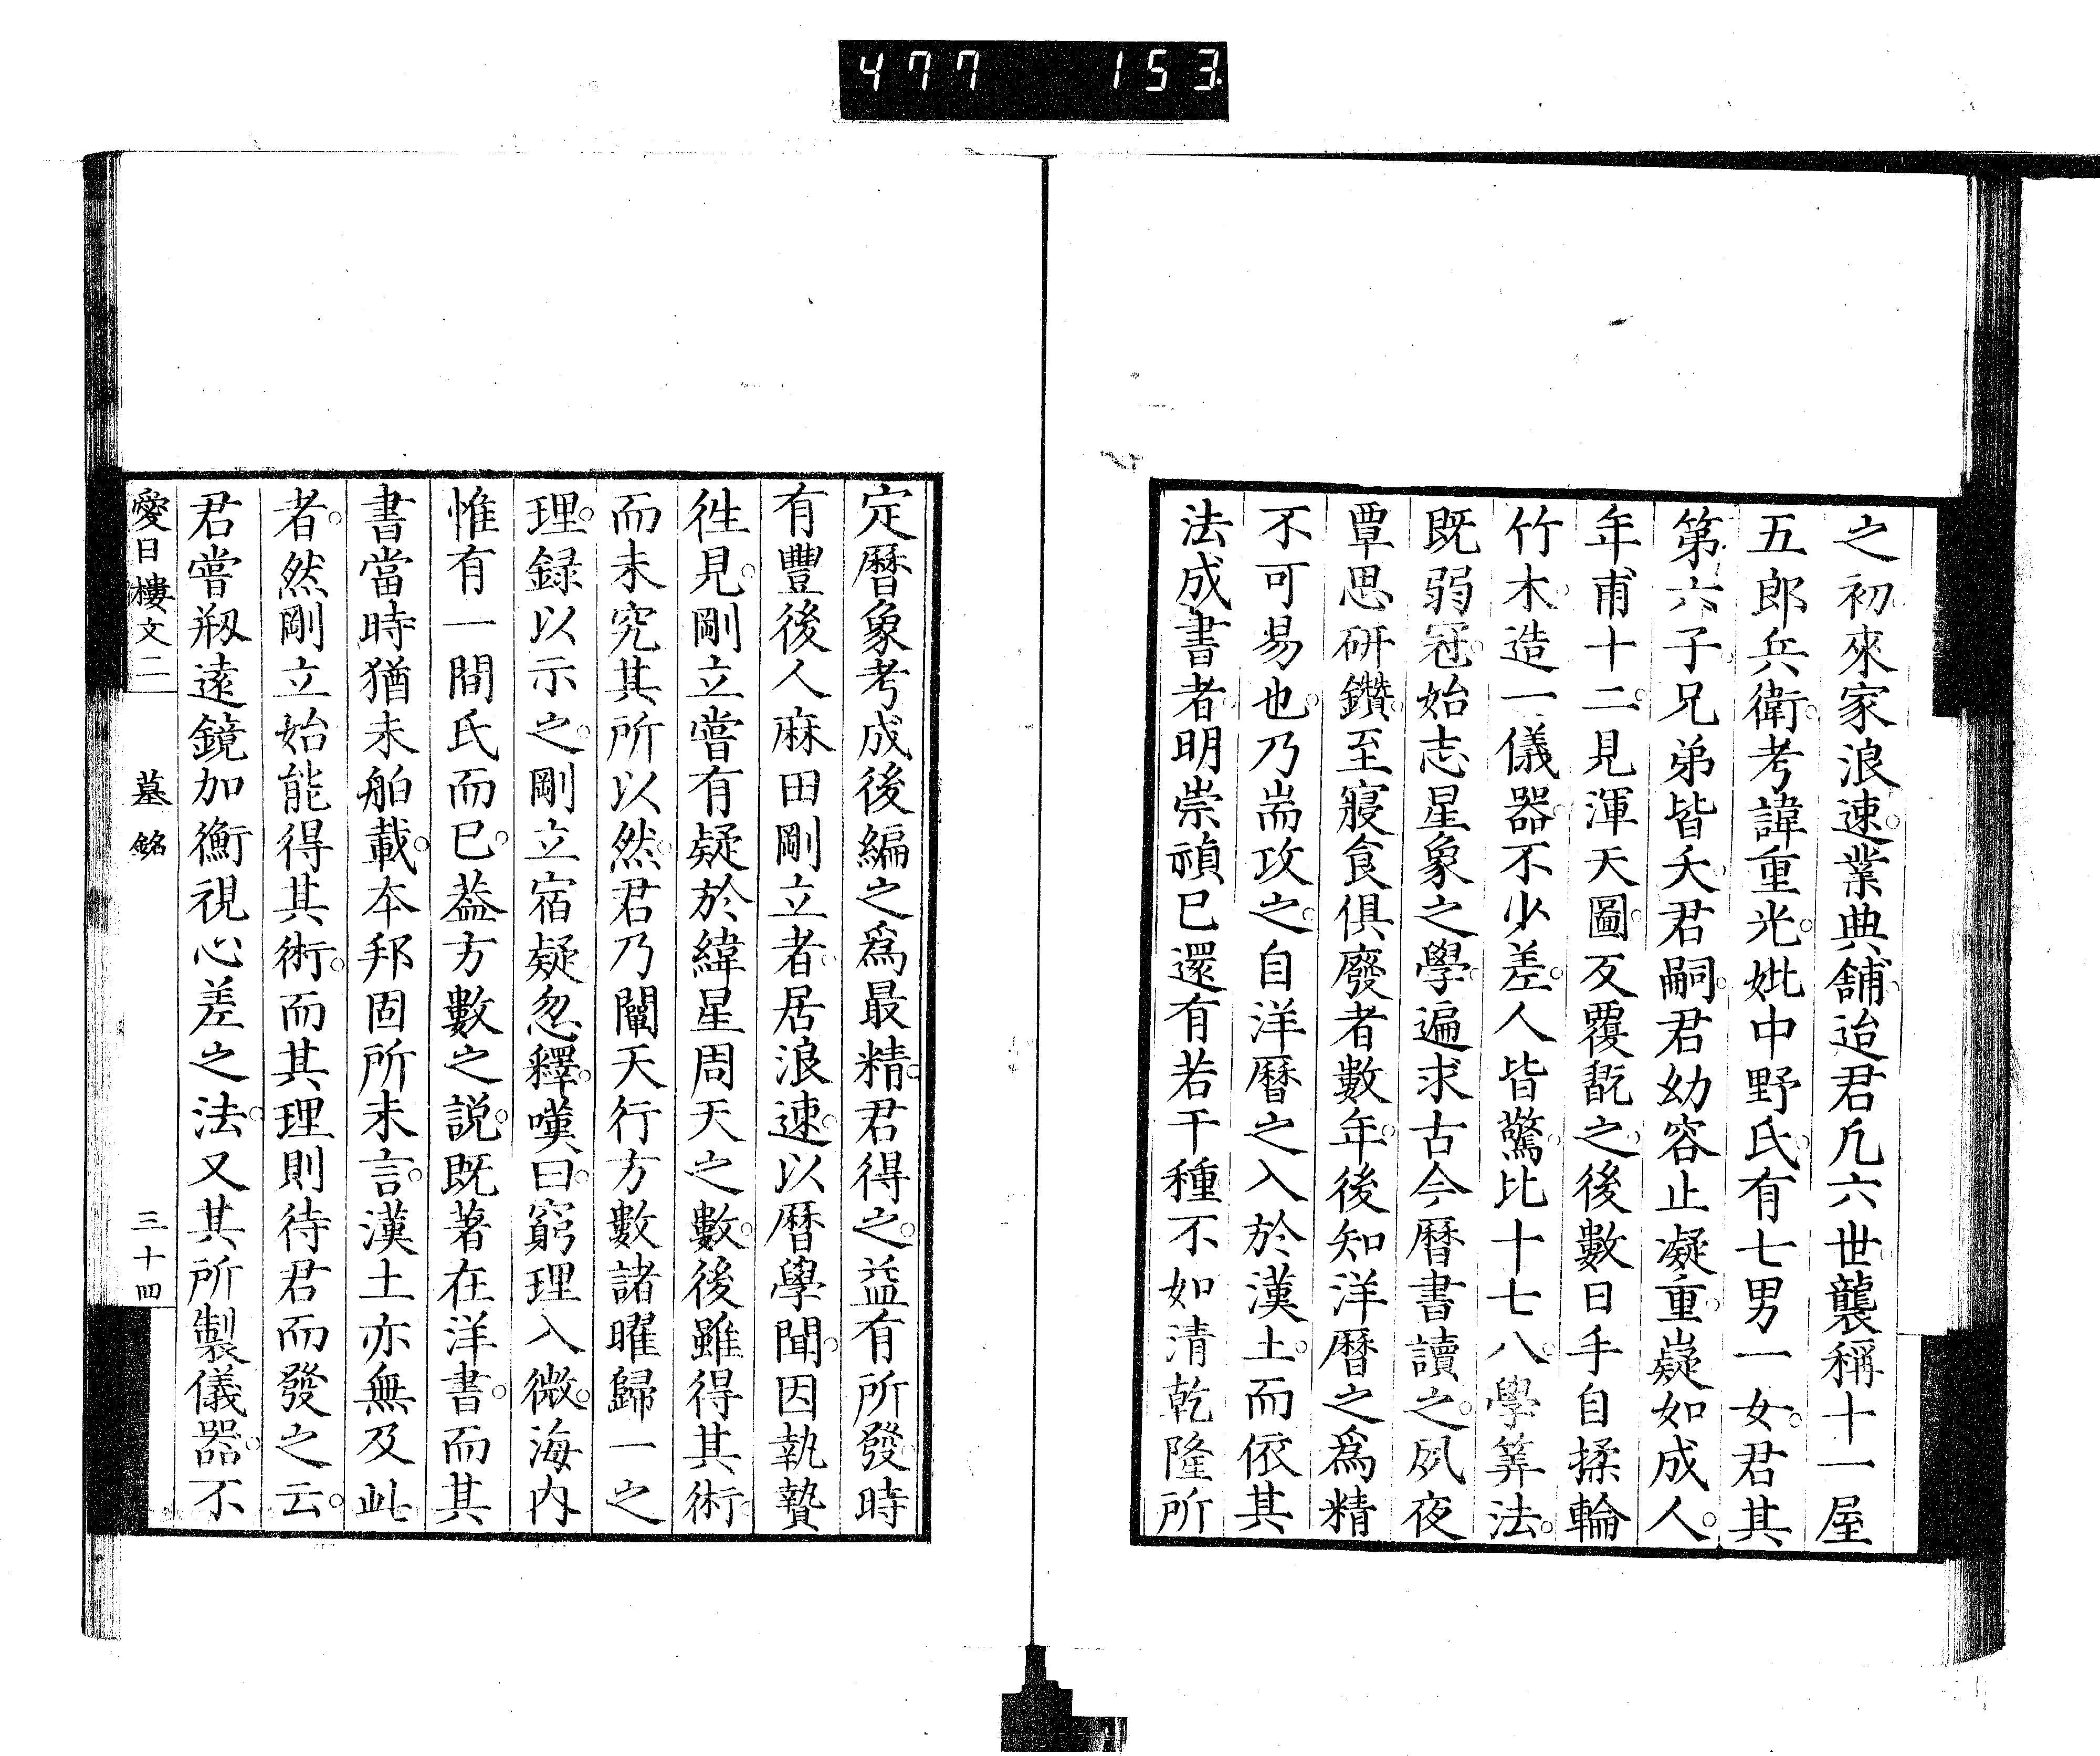 477 153
之初來家浪速。業典舖。迨君凡六世。襲稱十一屋
五郎兵衛。考諱重光。妣中野氏。有七男一女。君其
第六子。兄弟皆夭。君嗣。君幼容止凝重。嶷如成人。
年甫十二。見渾天圖。反覆翫之。後數日手自揉輪
竹木。造一儀器。不少差。人皆驚。比十七八。學筭法。
既弱冠。始志星象之學。遍求古今曆書讀之。夙夜
覃思研鑽。至寢食俱廢者數年。後知洋曆之爲精
不可易也。乃耑攻之。自洋曆之入於漢土。而依其
法成書者。明崇禎已還有若干種。不如清乾隆所
定曆象考成後編之爲最精。君得之。益有所發。時
有豐後人麻田剛立者。居浪速。以曆學聞。因執贄
徃見。剛立嘗有疑於緯星周天之數。後雖得其術。
而未究其所以然。君乃闡天行方數諸曜歸一之
理。録以示之。剛立宿疑忽釋。嘆曰。窮理入微。海内
惟有一間氏而已。葢方數之說。既著在洋書。而其
書當時猶未舶載。本邦固所未言。漢土亦無及此
者。然剛立始能得其術。而其理則待君而發之云。
君嘗剏遠鏡加衡視心差之法。又其所製儀器。不
愛日樓文二 墓銘 三十四